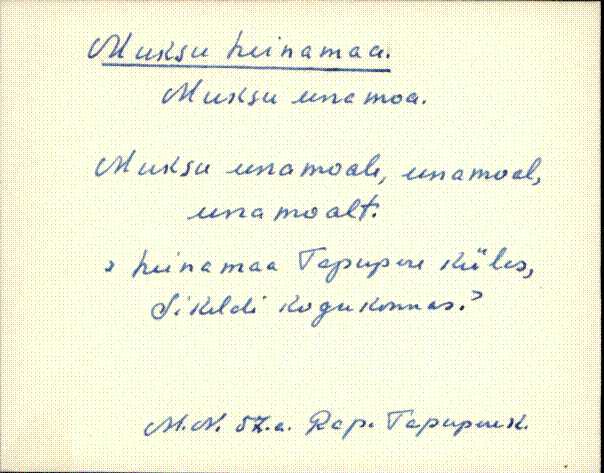 Muksu heinamaa.
Muksu einamoa.
Muksu einamoale, einamoal,
einamoalt.
› heinamaa Tapupere küles,
Sikeldi kogukonnas.›
M.N. 57.a. Rap. Tapupere k.